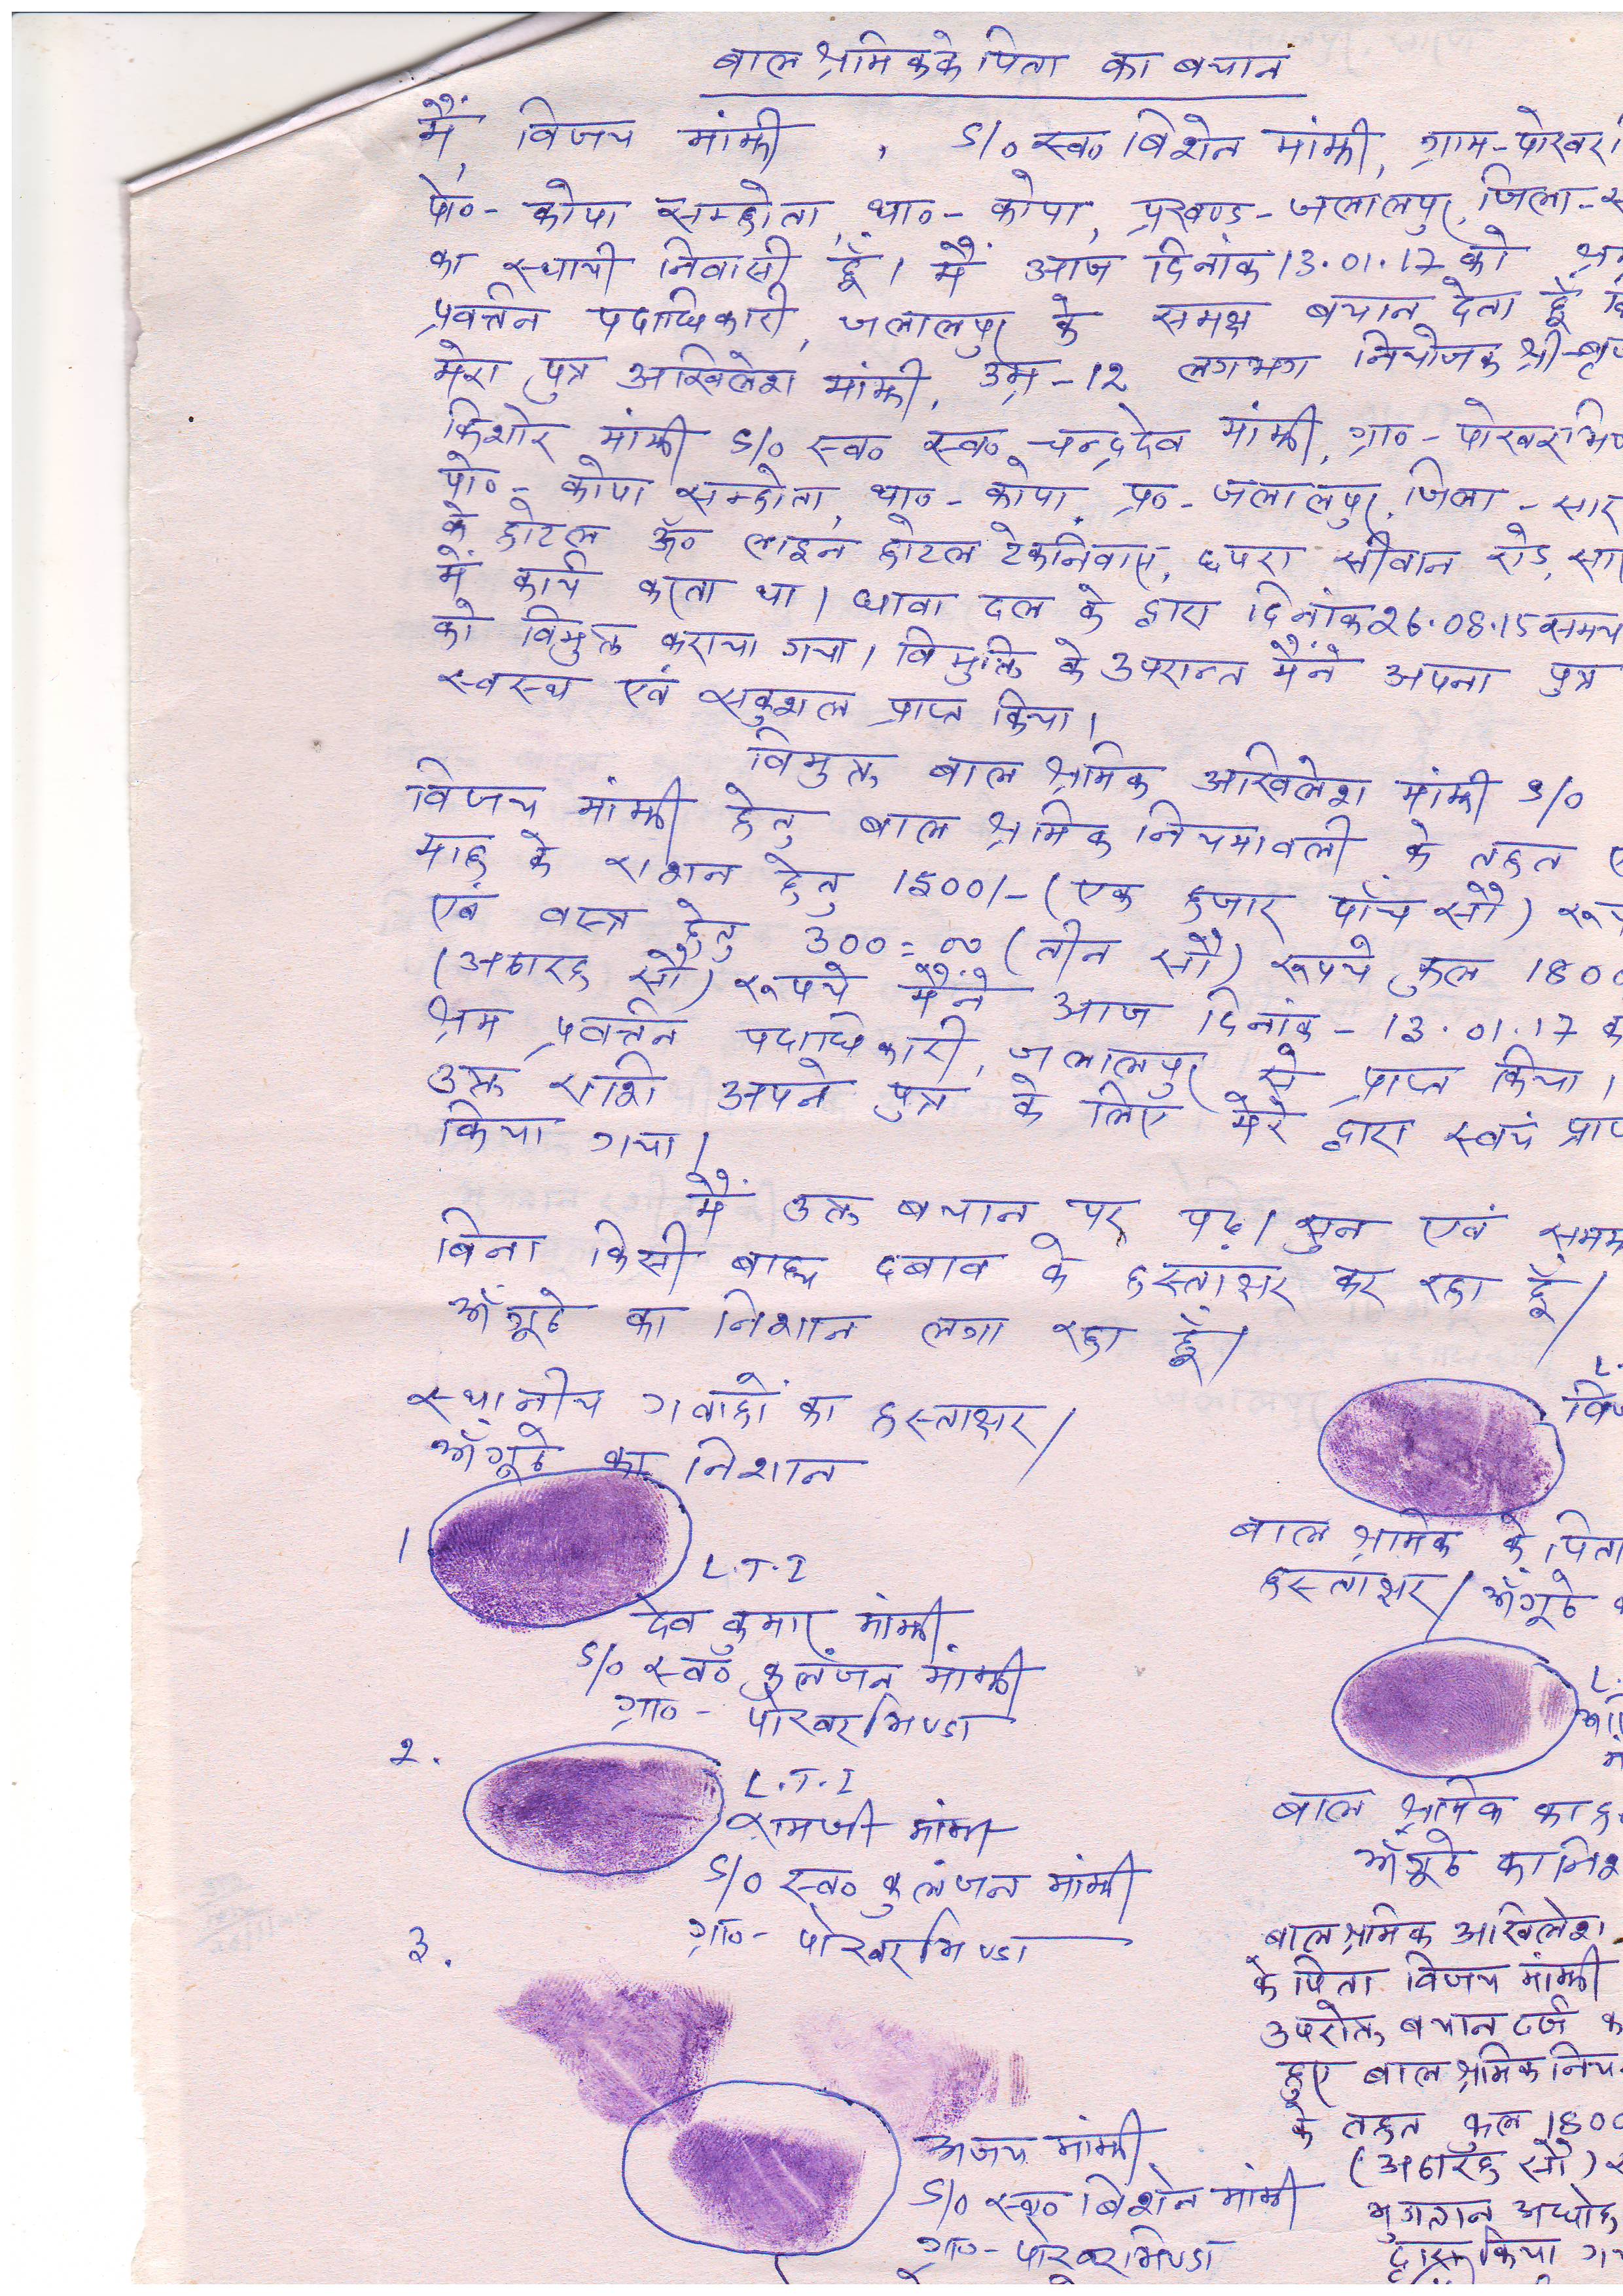 बाल श्रमिक के पिता का बयान
मैं, विजय मांझी, S/o स्व० बिशेन मांझी, ग्राम-पोखर
पो०- कोपा सम्होता, था०- कोपा, प्रखण्ड- जलालपुर, जिला-
का स्थायी निवासी हूँ। मैं आज दिनांक 13.01.17 को
प्रवर्त्तन पदाधिकारी, जलालपुर के समक्ष बयान देता हूँ
मेरा पुत्र अखिलेश मांझी, उम्र-12 लगभग नियोजक श्री
किशोर मांझी S/o स्व० स्व० चन्द्रदेव मांझी, ग्रा०- पोखरभि
पो०- कोपा सम्होता, था०- कोपा, प्र०- जलालपुर, जिला- सार
के होटल ॐ लाइन होटल टेकनिवास, छपरा सीवान रोड,
में कार्य करता था। धावा दल के द्वारा दिनांक 26.08.15 समय
को विमुक्त कराया गया। विमुक्ति के उपरान्त मैंने अपना पुत्र
स्वस्थ एवं सकुशल प्राप्त किया।
विमुक्त बाल श्रमिक अखिलेश मांझी S/o
विजय मांझी हेतु बाल श्रमिक नियमावली के तहत
माह के राशन हेतु 1500/- (एक हजार पाँच सौ)
एवं वस्त्र हेतु 300=00 (तीन सौ) रूपये कुल 1800
(अठारह सौ) रूपये मैंने आज दिनांक- 13.01.17
श्रम प्रवर्त्तन पदाधिकारी, जलालपुर से प्राप्त किया।
उक्त राशि अपने पुत्र के लिए मेरे द्वारा स्वयं प्राप
किया गया।
मैं उक्त बयान पर पढ़। सुन एवं समझ
बिना किसी बाह्य दबाव के हस्ताक्षर कर रहा हूँ/
अँगूठे का निशान लगा रहा हूँ/
स्थानीय गवाहों का हस्ताक्षर/
अँगूठे का निशान
1
L.T.I
देव कुमार मांझी
S/o स्व० कुलंजन मांझी
ग्रा०- पोखरभिण्डा
2.
L.T.I
रामजी मांझी
S/o स्व० कुलंजन मांझी
ग्रा०- पोखरभिण्डा
3.
अजय मांझी
S/o स्व० बिशेन मांझी
ग्रा०- पोखरभिण्डा
बाल श्रमिक के पिता
हस्ताक्षर/अँगूठे
बाल श्रमिक का ह
अँगूठे का निश
बाल श्रमिक अखिलेश
के पिता विजय मांझी
उपरोक्त बयान दर्ज
हुए बाल श्रमिक निय
के तहत कुल 1800
(अठारह सौ)
भुगतान अधोह
द्वारा किया ग